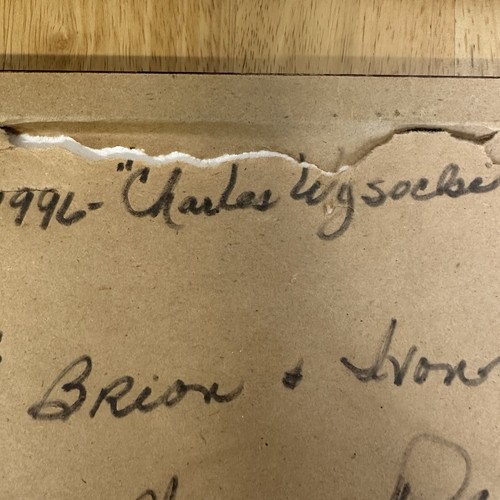 1996- "Charles Wysocki
Brion + Ivon